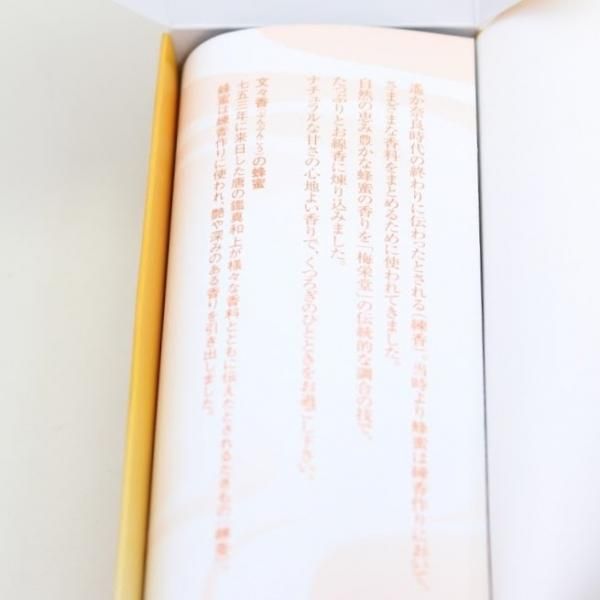 遥か奈良時代の終わりに伝わったとされる「練香」。当時より蜂蜜は練香作りにおいて、
さまざまな香料をまとめるために使われてきました。
自然の恵み豊かな蜂蜜の香りを「梅栄堂」の伝統的な調合の技で、
たっぷりとお線香に煉り込みました。
ナチュラルな甘さの心地よい香りで、くつろぎのひとときをお過ごし下さい。
文々香(ぶんぶんこう)の蜂蜜
七五三年に来日した唐の鑑真和上が様々な香料とともに伝えたとされるたきもの「練香」。
蜂蜜は練香作りに使われ、艶や深みのある香りを引き出しました。